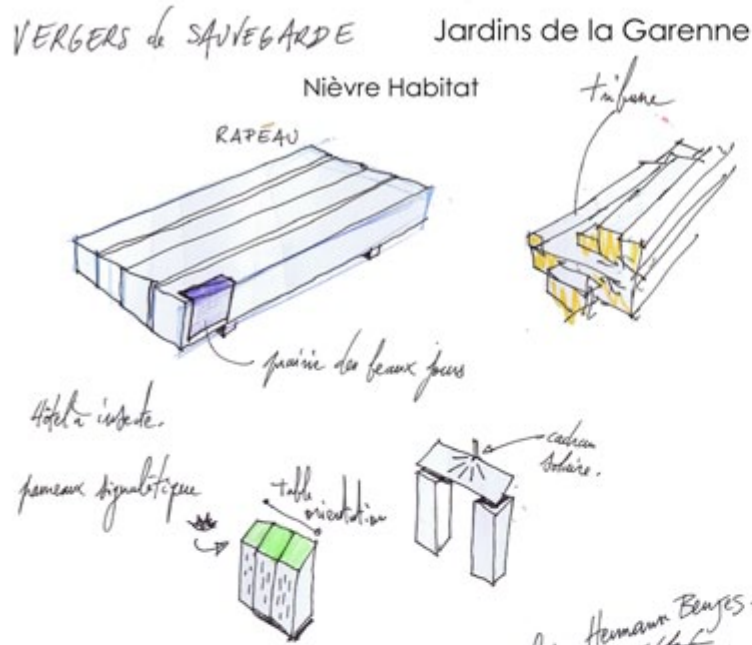 VERGERS de SAUVEGARDE
Jardins de la Garenne
Nièvre Habitat
RAPÉAU
tribune
prairie des beaux jours
Hôtel à insecte.
panneaux signalétique
table
orientation
cadran
solaire.
Hermann Benjes.